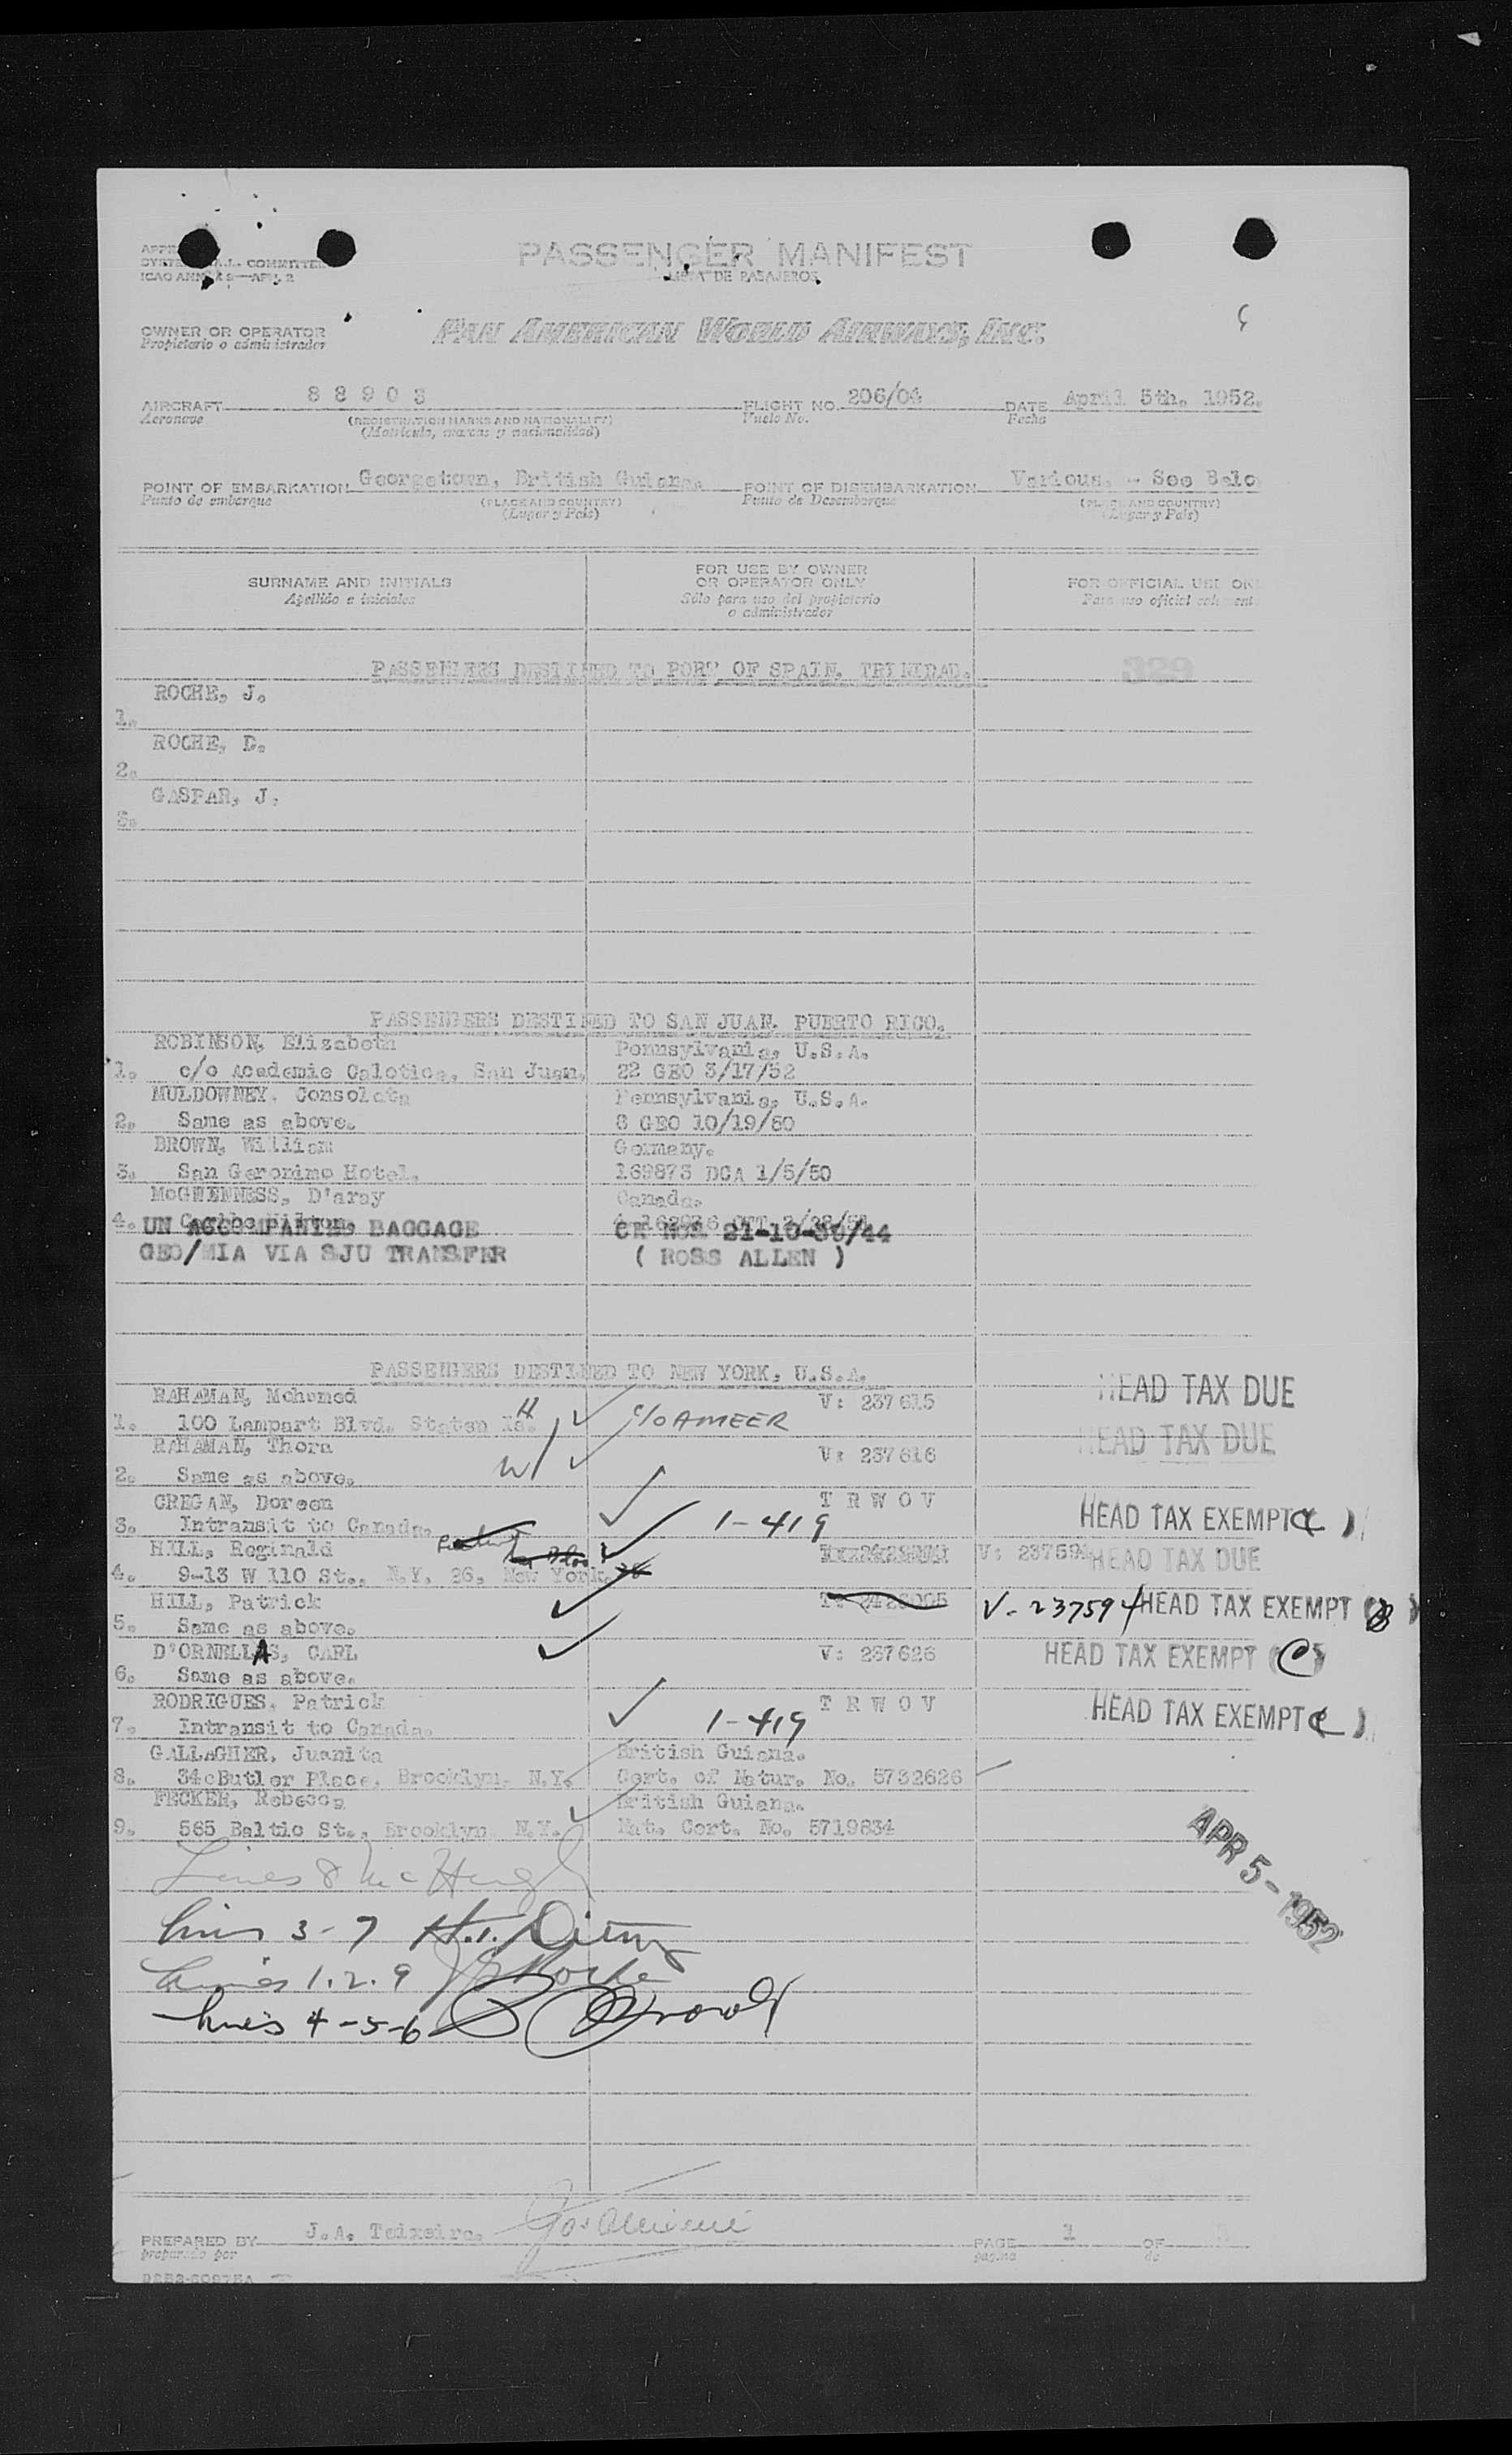 PASSENGER MANIFEST
LISTA DE PASAJEROS
COMMITTEE
OWNER OR OPERATOR
Propietario o administrador
PAN AMERICAN WORLD AIRWAYS, INC.
AIRCRAFT 88903 FLIGHT NO. 206/04 DATE April 5th, 1952.
Aeronave (REGISTRATION MARKS AND NATIONALITY) Vuelo No. Fecha
(Matrícula, marcas y nacionalidad)
POINT OF EMBARKATION Georgetown, British Guiana. POINT OF DISEMBARKATION Various. - See Belo
Punto de embarque (PLACE AND COUNTRY) Punto de Desembarque (PLACE AND COUNTRY)
(Lugar y País) (Lugar y País)
SURNAME AND INITIALS FOR USE BY OWNER FOR OFFICIAL USE ONL
Apellido e iniciales OR OPERATOR ONLY Para uso oficial
Sólo para uso del propietario
o administrador
PASSENGERS DESTINED TO PORT OF SPAIN, TRINIDAD. 329
ROCHE, J.
1.
ROCHE, D.
2.
GASPAR, J.
3.
PASSENGERS DESTINED TO SAN JUAN, PUERTO RICO.
ROBINSON, Elizabeth Pennsylvania, U.S.A.
1. c/o Academie Calotica, San Juan. 22 GEO 3/17/52
MULDOWNEY, Consolata Pennsylvania, U.S.A.
2. Same as above. 8 GEO 10/19/50
BROWN, William Germany.
3. San Geronimo Hotel. 169873 DCA 1/5/50
McGUENNESS, D'arsy Canada.
4. Caribe Hilton.
UN ACCOMPANIED BAGGAGE CR NOS 21-10-30/44
GEO/MIA VIA SJU TRANSFER ( ROSS ALLEN )
PASSENGERS DESTINED TO NEW YORK, U.S.A.
RAHAMAN, Mohamed V: 237615 HEAD TAX DUE
1. 100 Lampart Blvd. Staten Is. H c/o AMEER
RAHAMAN, Thora V: 237616 HEAD TAX DUE
2. Same as above. W
CREGAN, Doreen T R W O V
3. Intransit to Canada. 1-419 HEAD TAX EXEMPT (C)
HILL, Reginald V: 237594 HEAD TAX DUE
4. 9-13 W 110 St., N.Y. 26, New York.
HILL, Patrick V-237594 HEAD TAX EXEMPT (B)
5. Same as above.
D'ORNELLAS, CARL V: 237626 HEAD TAX EXEMPT (C)
6. Same as above.
RODRIGUES, Patrick T R W O V
7. Intransit to Canada. 1-419 HEAD TAX EXEMPT (C)
GALLAGHER, Juanita British Guiana.
8. 34cButler Place, Brooklyn, N.Y. Cert. of Natur. No. 5732626
FECKER, Rebecca British Guiana.
9. 565 Baltic St., Brooklyn N.Y. Nat. Cert. No. 5719834
APR 5-1952
Lines 8 McHugh
lines 3-7
Lines 1.2.9
lines 4-5-6
PREPARED BY J.A. Teixeira. PAGE 1 OF
preparado por página de